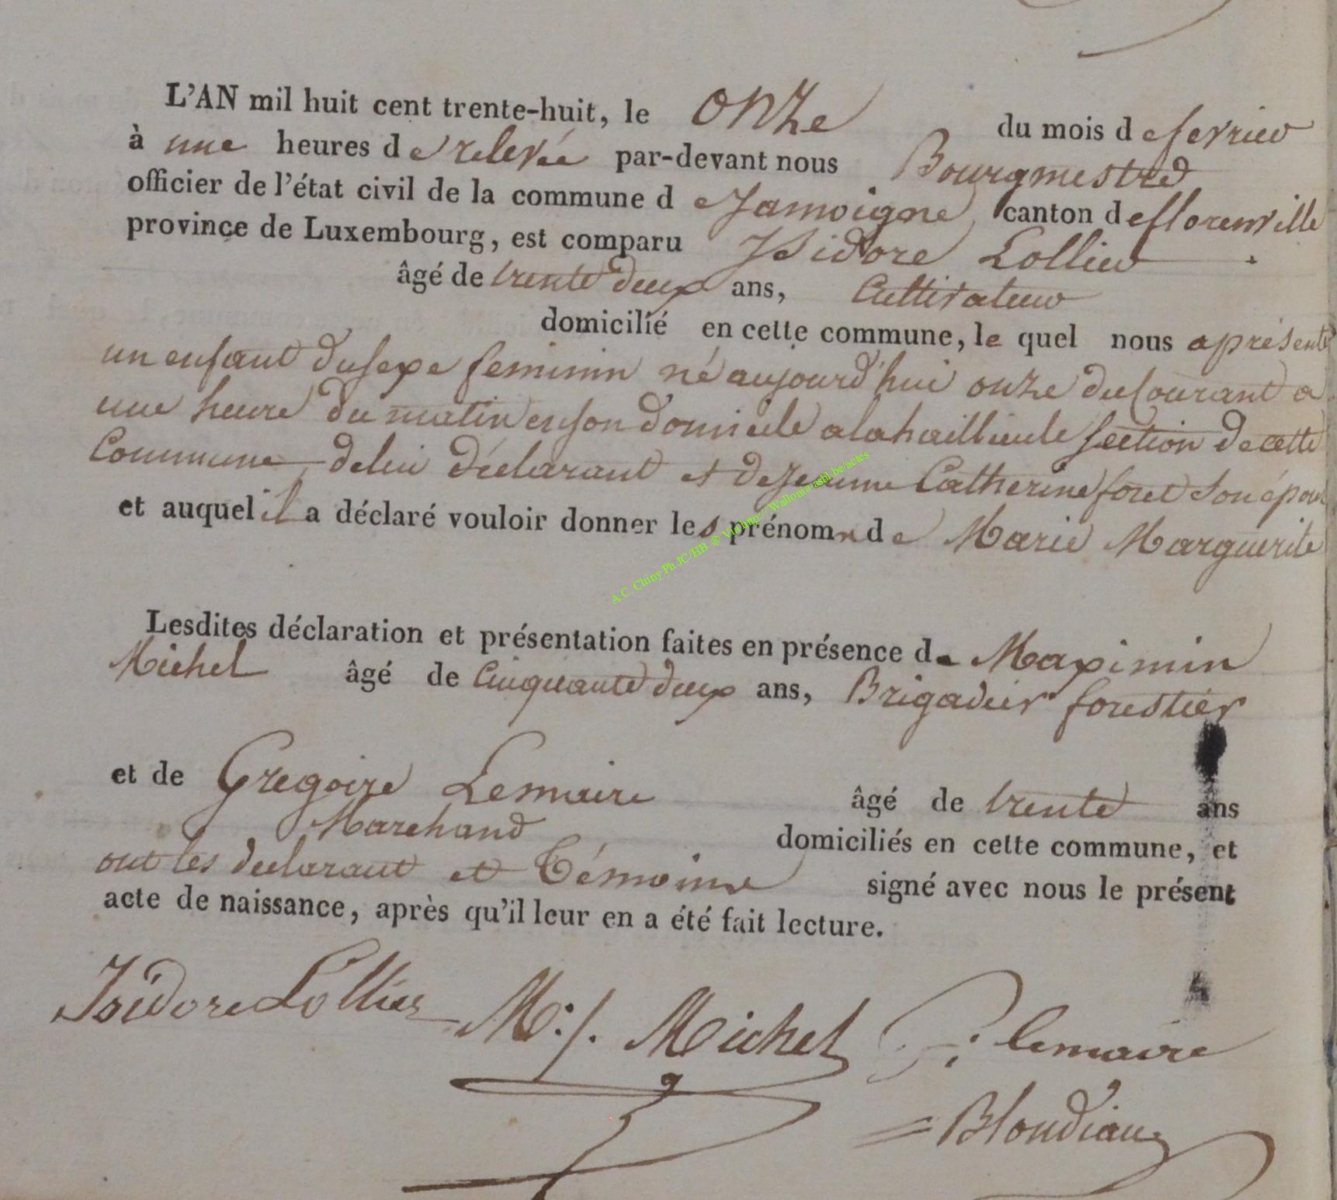 L'AN mil huit cent trente-huit, le onze du mois de fevrier
à une heures de relevée par-devant nous Bourgmestre
officier de l'état civil de la commune de Jamoigne canton de florenville
province de Luxembourg, est comparu Isidore Lollier
âgé de trente deux ans, Cultivateur
domicilié en cette commune, le quel nous a présenté
un enfant du sexe feminin né aujourd'hui onze du Courant a
une heure du matin en son domicile a lahaillieule section de cette
Commune de lui déclarant et de Jeanne Catherine foret son épouse
et auquel il a déclaré vouloir donner les prénoms de Marie Marguerite
Lesdites déclaration et présentation faites en présence de Maximin
Michel âgé de Cinquante deux ans, Brigadier forestier
et de Gregoire Lemaire âgé de trente ans
Marchand domiciliés en cette commune, et
ont les declarant et Témoins signé avec nous le présent
acte de naissance, après qu'il leur en a été fait lecture.
Isidore Lollier M:/. Michel G: lemaire
= Blondiau